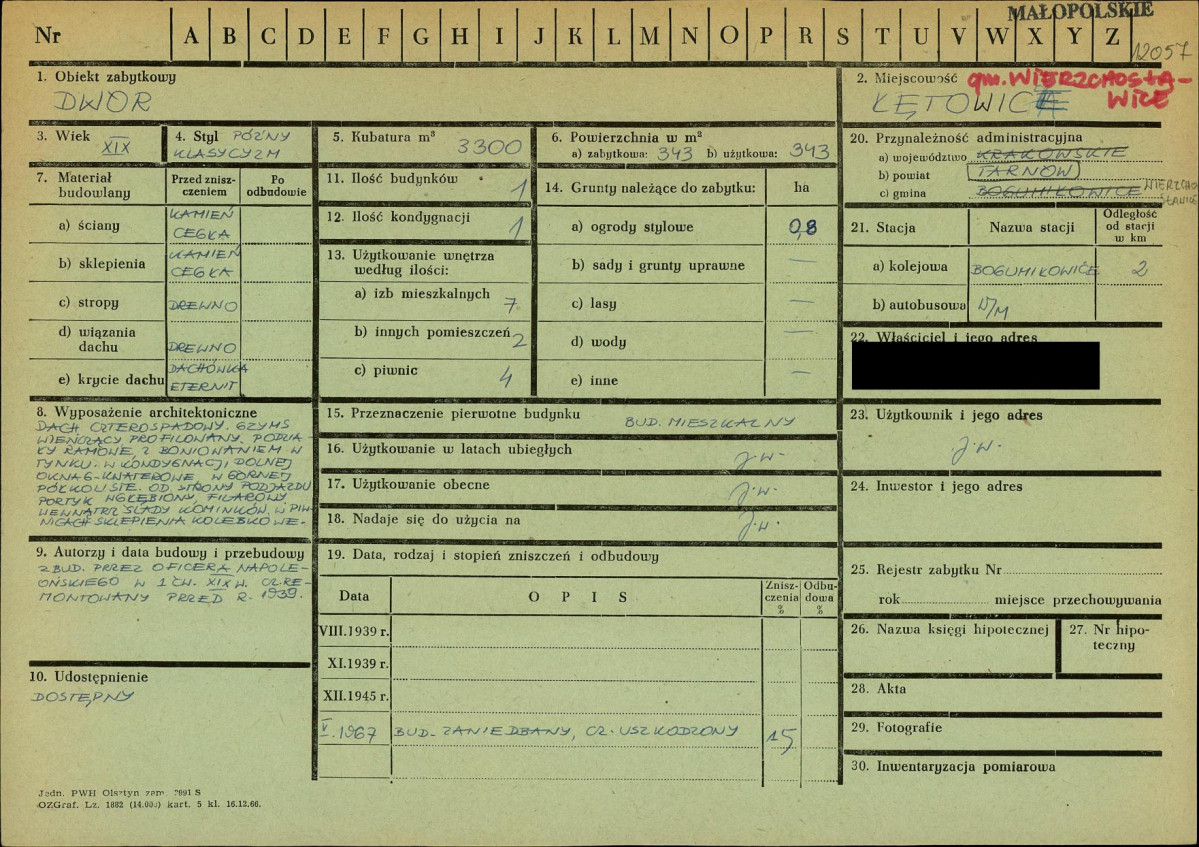 MAŁOPOLSKIE
Nr A B C D E F G H I J K L M N O P R S T U V W X Y Z
12057
1. Obiekt zabytkowy
DWÓR
2. Miejscowość gm. WIERZCHOSŁA-
WICE
ŁĘTOWICE
3. Wiek XIX
4. Styl PÓŹNY
KLASYCYZM
5. Kubatura m³ 3300
6. Powierzchnia w m²
a) zabytkowa: 343 b) użytkowa: 343
7. Materiał budowlany
Przed znisz-
czeniem
Po
odbudowie
a) ściany KAMIEŃ
CEGŁA
b) sklepienia KAMIEŃ
CEGŁA
c) stropy DREWNO
d) wiązania
dachu DREWNO
e) krycie dachu DACHÓWKA
ETERNIT
11. Ilość budynków 1
12. Ilość kondygnacji 1
13. Użytkowanie wnętrza
według ilości:
a) izb mieszkalnych 7
b) innych pomieszczeń 2
c) piwnic 4
14. Grunty należące do zabytku: ha
a) ogrody stylowe 0,8
b) sady i grunty uprawne —
c) lasy —
d) wody —
e) inne —
20. Przynależność administracyjna
a) województwo KRAKOWSKIE
b) powiat TARNÓW
c) gmina BOGUMIŁOWICE WIERZCHO
SŁAWICE
21. Stacja Nazwa stacji Odległość
od stacji
w km
a) kolejowa BOGUMIŁOWICE 2
b) autobusowa W/M
22. Właściciel i jego adres
8. Wyposażenie architektoniczne
DACH CZTEROSPADOWY. GZYMS
WIEŃCZĄCY PROFILOWANY. PODZIA-
ŁY RAMOWE, Z BONIOWANIEM W
TYNKU. W KONDYGNACJI DOLNEJ
OKNA 6-KWATEROWE W GÓRNEJ
PÓŁKOLISTE. OD STRONY PODJAZDU
PORTYK WGŁĘBIONY, FILAROWY
WEWNĄTRZ ŚLADY KOMINKÓW. W PIW-
NICACH SKLEPIENIA KOLEBKOWE-
15. Przeznaczenie pierwotne budynku BUD. MIESZKALNY
16. Użytkowanie w latach ubiegłych j.w.
17. Użytkowanie obecne j.w.
18. Nadaje się do użycia na j.w.
23. Użytkownik i jego adres
j.w.
24. Inwestor i jego adres
9. Autorzy i data budowy i przebudowy
ZBUD. PRZEZ OFICERA NAPOLE-
OŃSKIEGO W 1 ĆW. XIX W. CZ. RE-
MONTOWANY PRZED R. 1939.
10. Udostępnienie
DOSTĘPNY
19. Data, rodzaj i stopień zniszczeń i odbudowy
Data O P I S Znisz-
czenia
% Odbu-
dowa
%
VIII.1939 r.
XI.1939 r.
XII.1945 r.
V.1967 BUD. ZANIEDBANY, CZ. USZKODZONY 15
25. Rejestr zabytku Nr
rok miejsce przechowywania
26. Nazwa księgi hipotecznej
27. Nr hipo-
teczny
28. Akta
29. Fotografie
30. Inwentaryzacja pomiarowa
Jedn. PWH Olsztyn zam. 2991 S
OZGraf. Lz. 1882 (14.000) kart. 5 kl. 16.12.66.